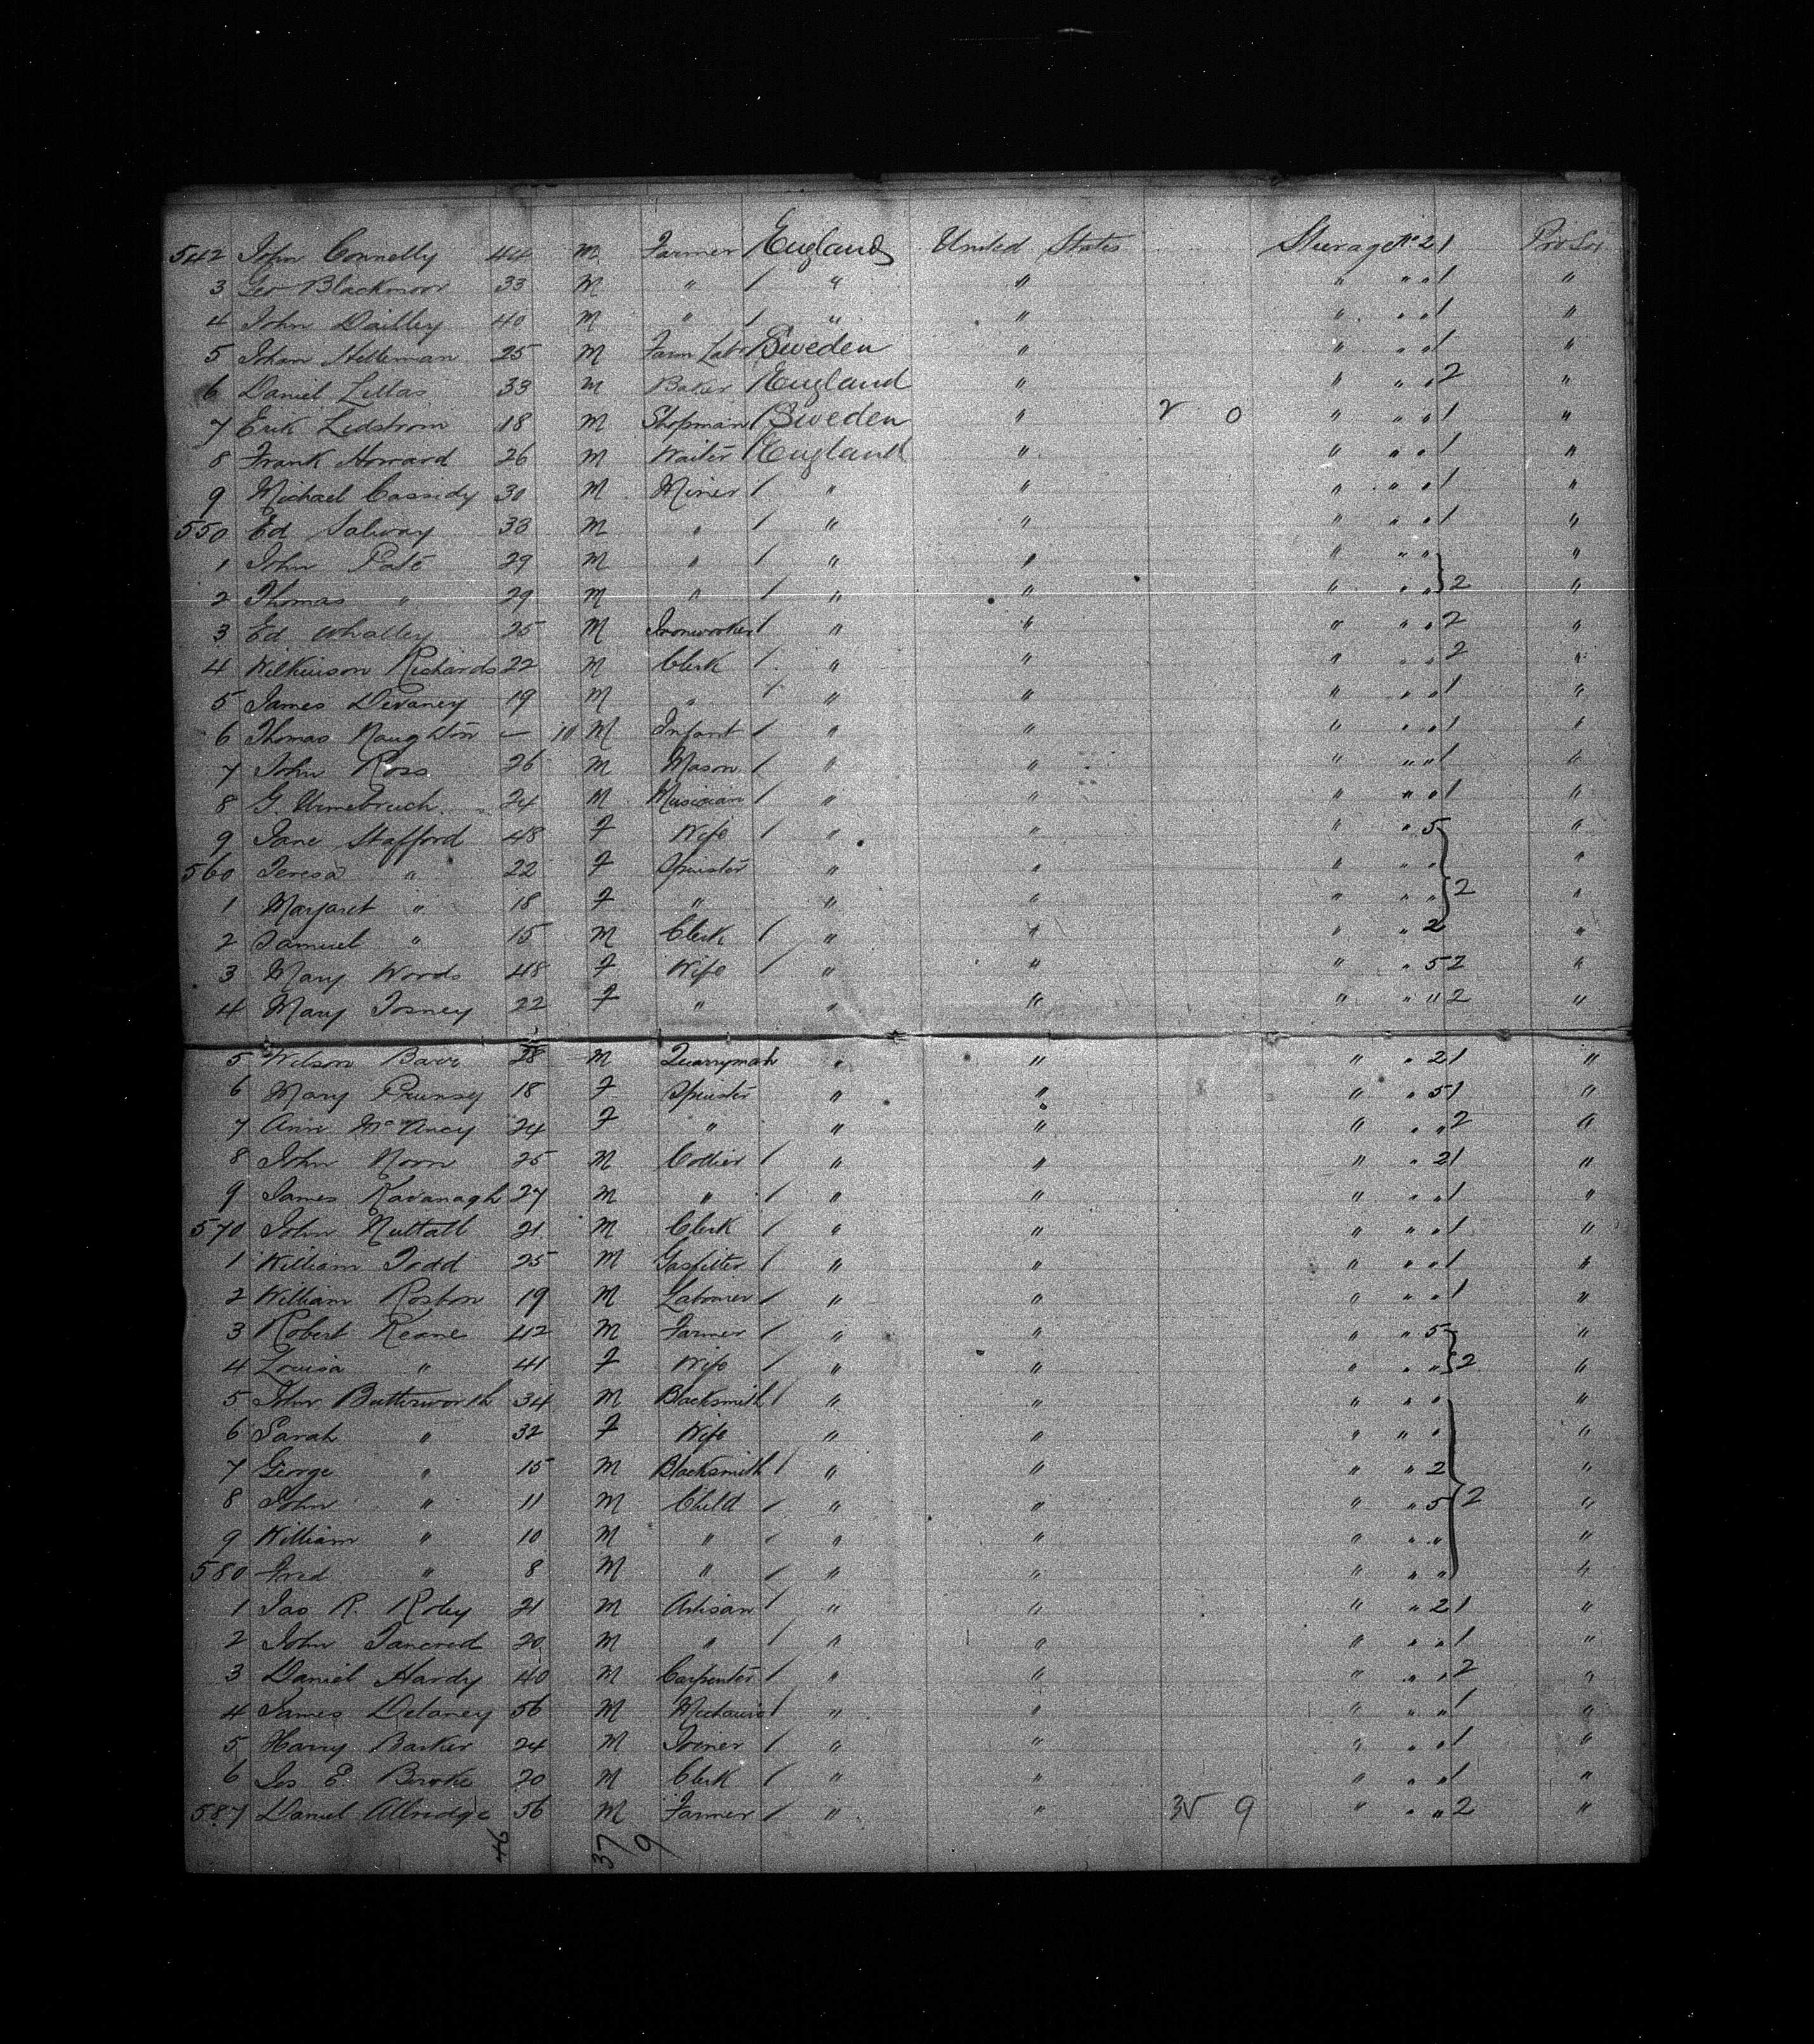 542 John Connelly 44 M Farmer / England United States Steerage No 2 1 Pro Soj
3 Geo Blackmoor 33 M " / " " " " " 1 "
4 John Dailley 40 M " / " " " " " 1 "
5 Johan 25 M Farm Labr / Sweden " " " " 1 "
6 Daniel 33 M Baker / England " " " " 2 "
7 Erik Lidstrom 18 M Shopman / Sweden " 2 0 " " " 1 "
8 Frank Howard 26 M Waiter / England " " " " 1 "
9 Michael Cassidy 30 M Miner / " " " " " 1 "
550 Ed Salway 33 M " / " " " " " 1 "
1 John Pate 29 M " / " " " " " "
2 Thomas " 29 M " / " " " " " } 2 "
3 Ed Whalley 25 M Ironworker / " " " " " 2 "
4 Wilkinson Richards 22 M Clerk / " " " " " 2 "
5 James Devaney 19 M " / " " " " " 1 "
6 Thomas Naughton — 10 M Infant / " " " " " 1 "
7 John Ross 26 M Mason / " " " " " 1 "
8 G. 24 M Musician / " " " " " 1 "
9 Jane Stafford 48 F Wife / " " " " 5 "
560 Teresa " 22 F Spinster " " " " " "
1 Margaret " 18 F " " " " " " } 2 "
2 Samuel " 15 M Clerk / " " " " 2 "
3 Mary Woods 48 F Wife / " " " " 5 2 "
4 Mary Tosney 22 F " " " " " " 2 "
5 Wilson Barr 28 M Quarryman " " " " 2 1 "
6 Mary 18 F Spinster " " " " 5 1 "
7 Ann 24 F " " " " " " 2 "
8 John Norn 25 M Collier / " " " " 2 1 "
9 James Kavanagh 27 M " / " " " " " 1 "
570 John Nuttall 21 M Clerk / " " " " " 1 "
1 William Todd 25 M Gasfitter / " " " " " 1 "
2 William Rosbon 19 M Labourer / " " " " " 1 "
3 Robert Keane 42 M Farmer / " " " " 5 "
4 Louisa " 41 F Wife / " " " " " } 2 "
5 John Butterworth 34 M Blacksmith / " " " " " "
6 Sarah " 32 F Wife " " " " " "
7 George " 15 M Blacksmith / " " " " 2 "
8 John " 11 M Child / " " " " 5 } 2 "
9 William " 10 M " / " " " " " "
580 Fred " 8 M " / " " " " " "
1 Jas R. Roby 21 M Artisan / " " " " 2 1 "
2 John Tancred 20 M " / " " " " " 1 "
3 Daniel Hardy 40 M Carpenter / " " " " " 2 "
4 James Delaney 56 M Mechanic / " " " " " 1 "
5 Harry Barker 24 M Joiner / " " " " " 1 "
6 Jos E 20 M Clerk / " " " " " 1 "
587 Daniel Allridge 56 M Farmer / " " 35 9 " " " 2 "
37 9